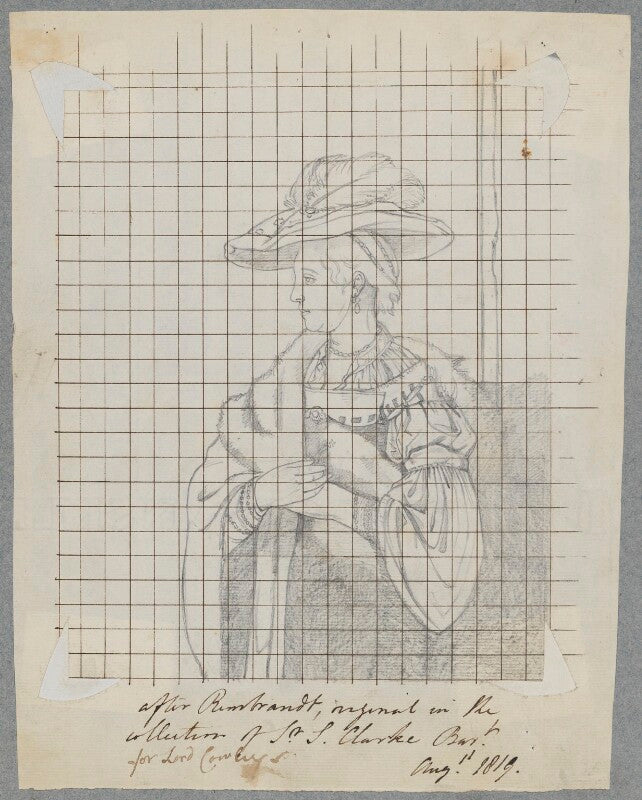 after Rembrandt, original in the
collection of Sr S. Clarke Bart.
for Lord
Augst 1819.